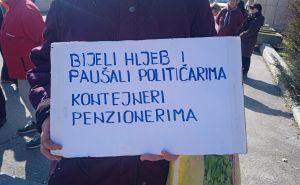 BIJELI HLJEB I
PAUŠALI POLITIČARIMA
KONTEJNERI
PENZIONERIMA